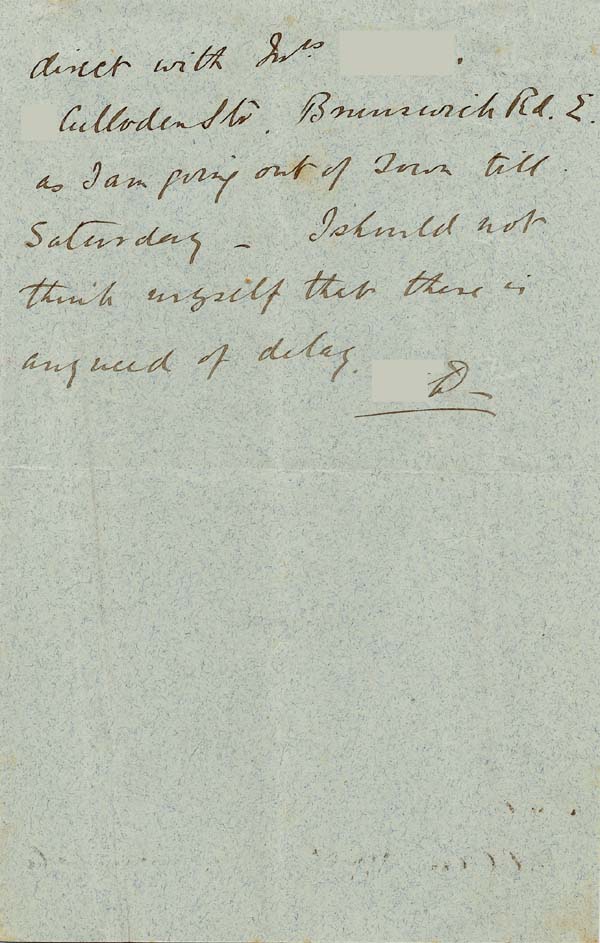 direct with Mrs .
Culloden Str. Brunswick Rd. E.
as I am going out of Town till
Saturday – I should not
think myself that there is
any need of delay.
D –